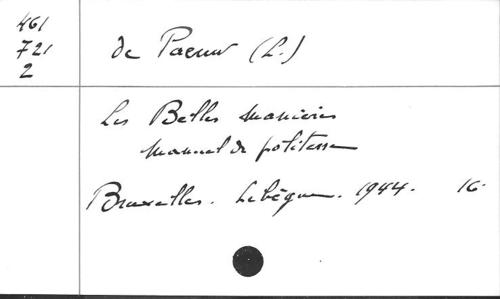 461
721
2
de Paeuw (L.)
Les Belles manières
Manuel de politesse
Bruxelles. Lebègue. 1944. 16